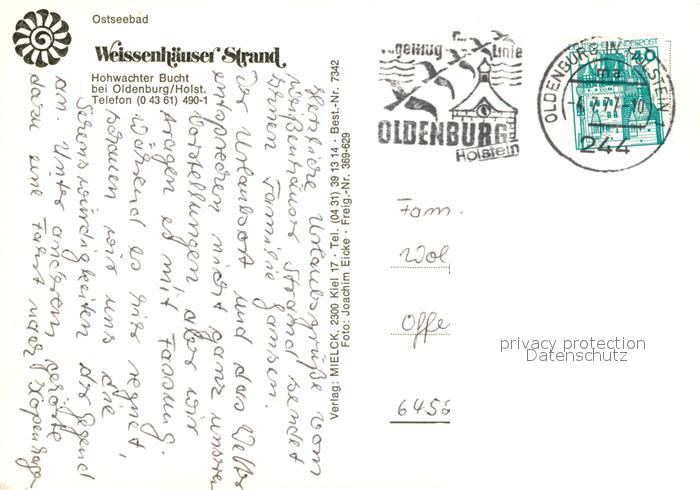 Ostseebad
Weissenhäuser Strand
Hohwachter Bucht
bei Oldenburg/Holst.
Telefon (0 43 61) 490-1
Herzliche Urlaubsgrüße vom
Weißenhäuser Strand sendet
Ihnen Familie Jansen.
Der Urlaubsort und das Wetter
entsprechen nicht ganz unseren
Vorstellungen aber wir
tragen es mit Fassung.
Während es hier regnet,
schauen wir uns die
Sehenswürdigkeiten der Gegend
an. Unter anderem gehörte
dazu eine Fahrt nach Kopenhagen
Verlag: MIELCK, 2300 Kiel 17 · Tel. (04 31) 39 13 14 · Best.-Nr. 7342
Foto: Joachim Eicke · Freig.-Nr. 369-629
Vogelflug Linie
OLDENBURG
Holstein
OLDENBURG IN HOLSTEIN
ma
-4.7.77-10
244
DEUTSCHE BUNDESPOST
40
Fam.
Wol
Offe
6452
privacy protection
Datenschutz